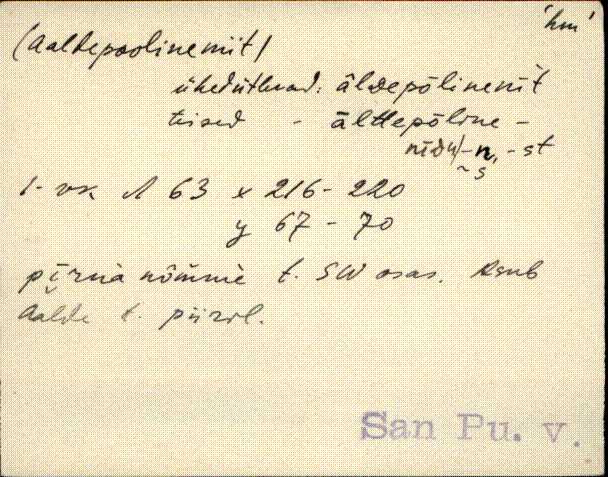 'hm'
(Aaltepoolinemiit)
ühedütlevad: äldepõlinemit
teised - älttepõline-
nidu -n, -st
~s
1-vk A 63 x 216-220
y 67-70
nõmme t. SW osas. Asub
Aalde t. piiril.
San Pu. v.